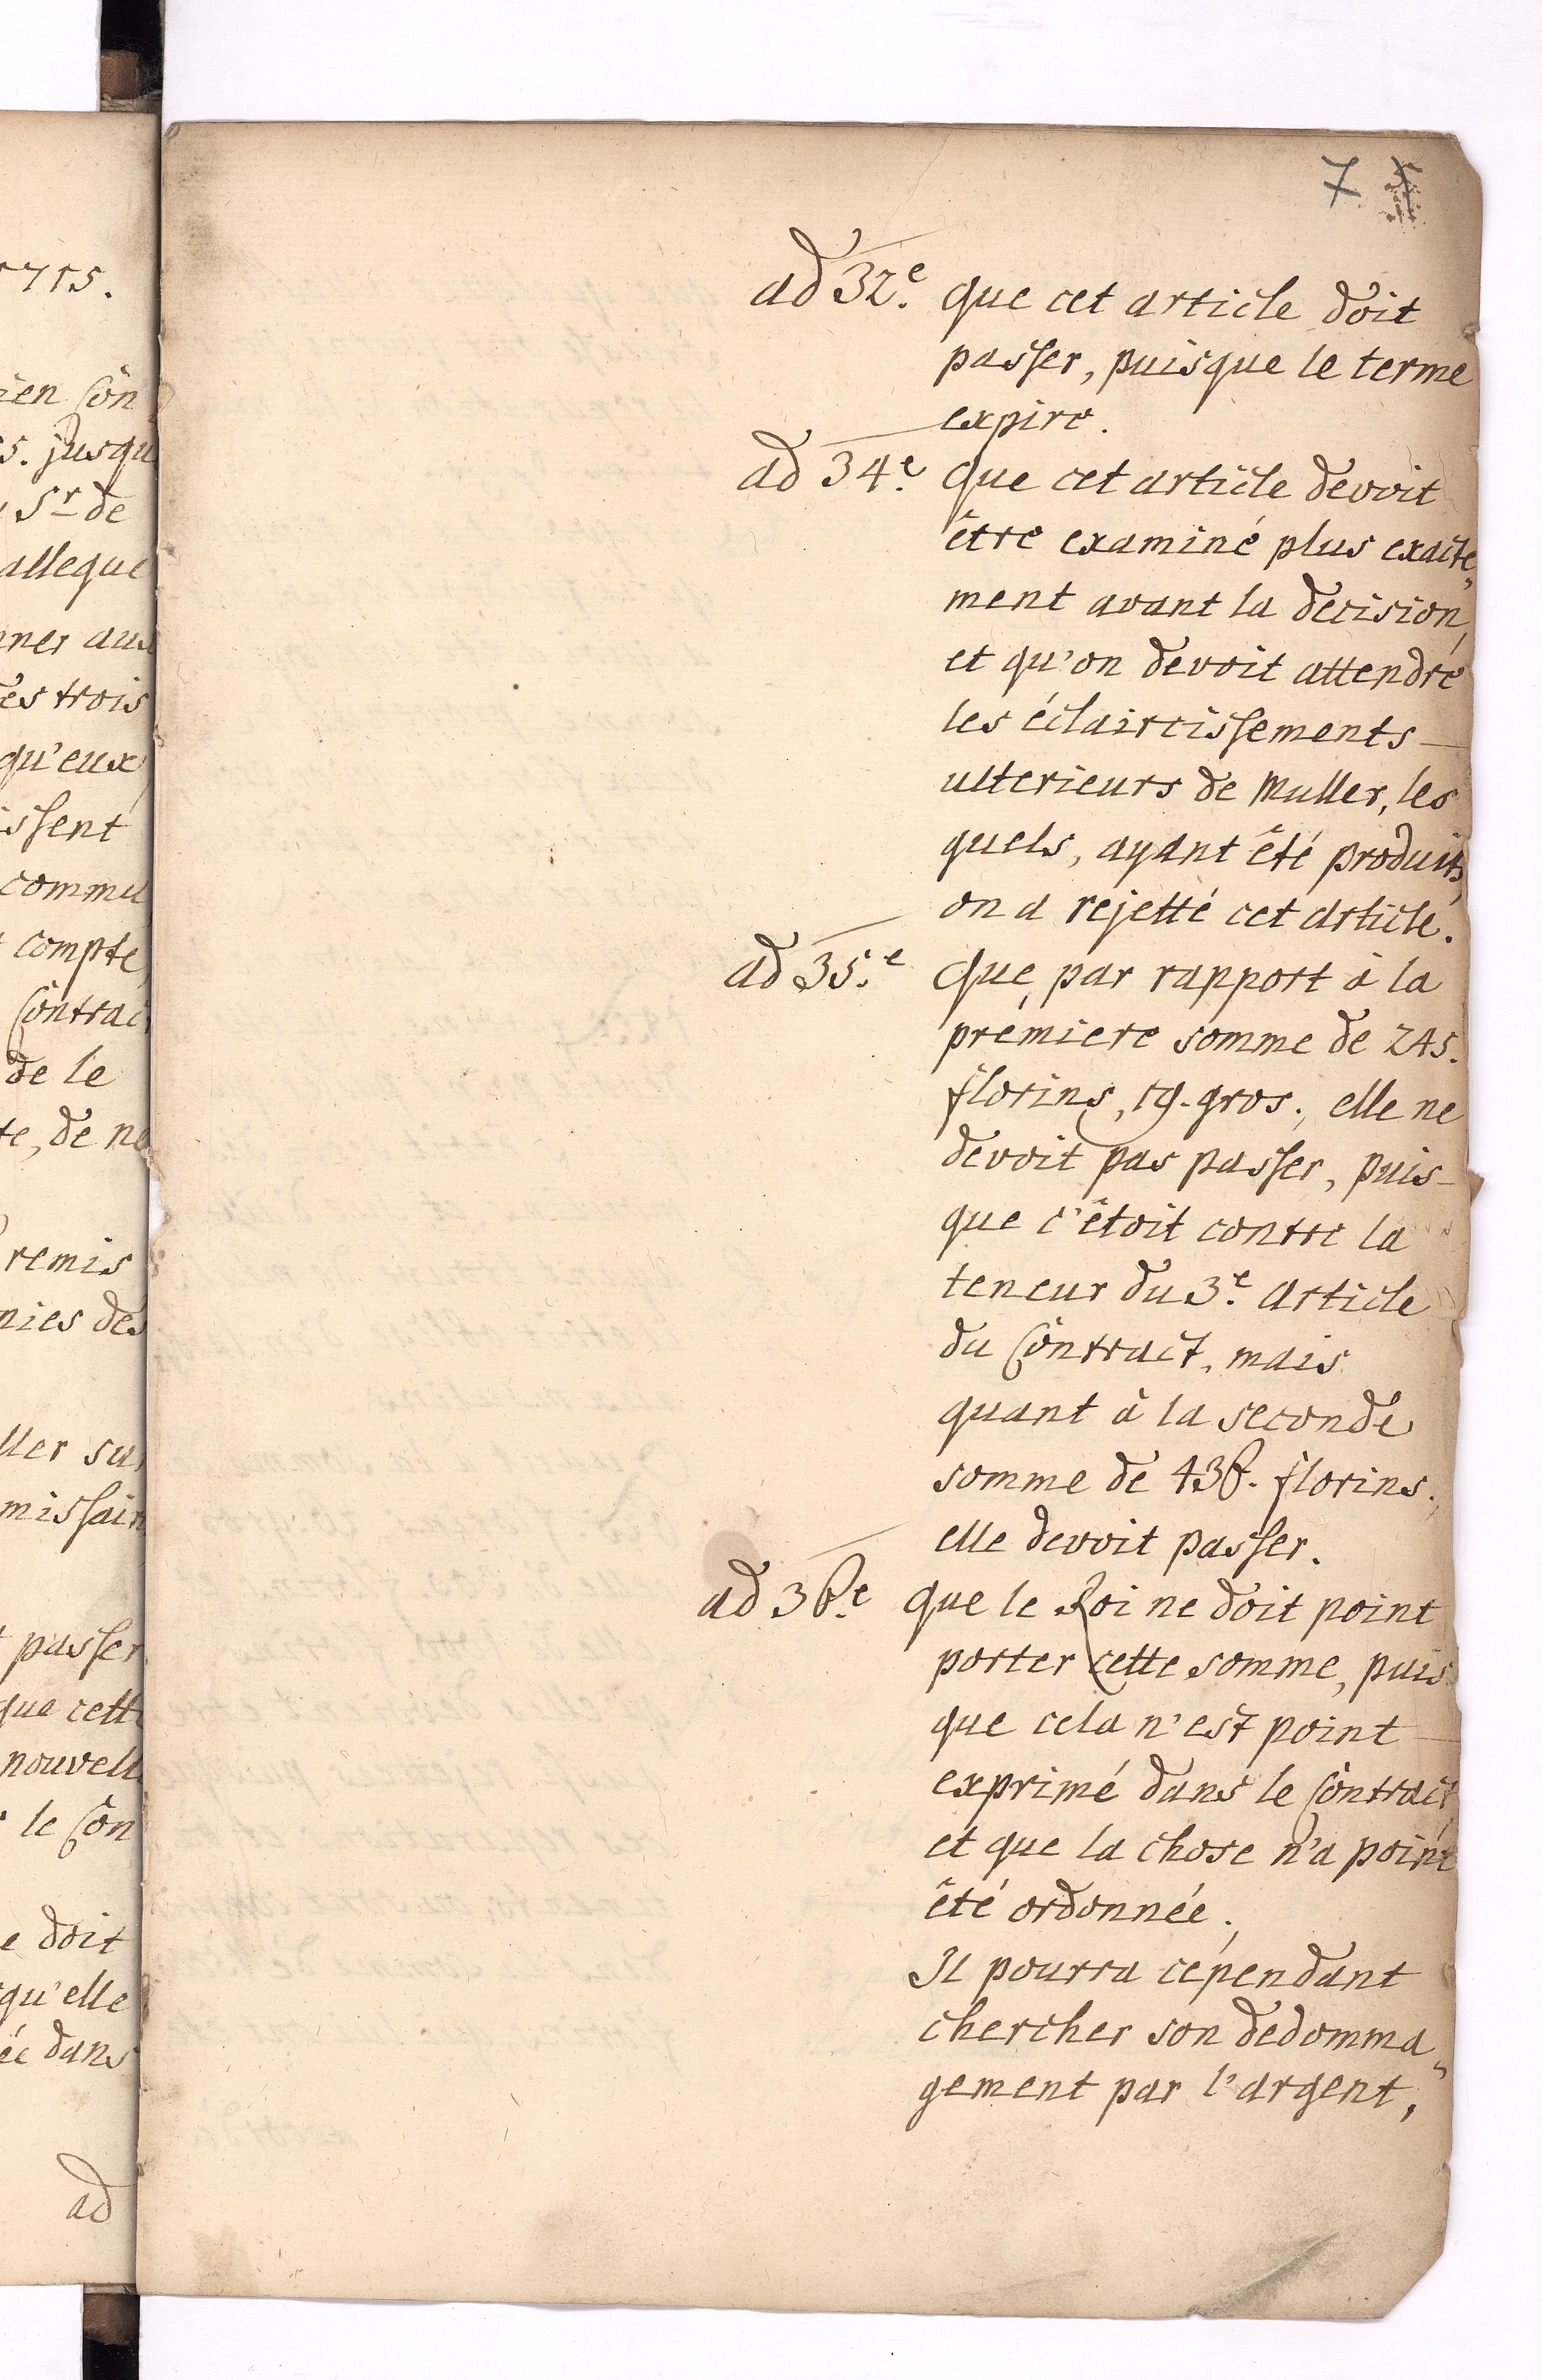 5715.
ien Con
5. jusqu
Sr de
allegué
nner aux
es trois
qu'eux
issent
commu
compte,
Contract
de le
te, de ne
remis
nies des
ller su
missair
passer
que cette
nouvell
le Con
e doit
qu'elle
ée dans
ad
7
ad 32e. que cet article doit
passer, puisque le terme
expire.
ad 34e. que cet article devoit
être examiné plus exacte„
ment avant la decision,
et qu'on devoit attendre
les éclaircissements
ulterieurs de Muller, les
quels, ayant été produits,
on a rejetté cet article.
ad 35.e que, par rapport à la
premiere somme de 245.
florins, 19. gros., elle ne
devoit pas passer, puis-
que c'étoit contre la
teneur du 3e. article
du Contract, mais
quant à la seconde
somme de 436. florins.,
elle devoit passer.
ad 36.e que le Roi ne doit point
porter cette somme, puis
que cela n'est point
exprimé dans le Contract,
et que la chose n'a point
été ordonnée.
Il pourra cépendant
chercher son dedomma„
gement par l'argent,